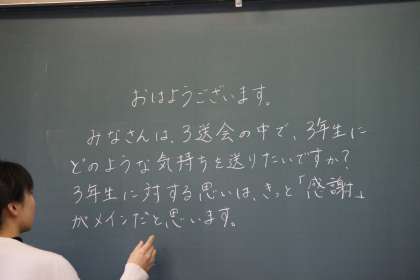 おはようございます。
みなさんは、3送会の中で、3年生に
どのような気持ちを送りたいですか?
3年生に対する思いは、きっと「感謝」
がメインだと思います。